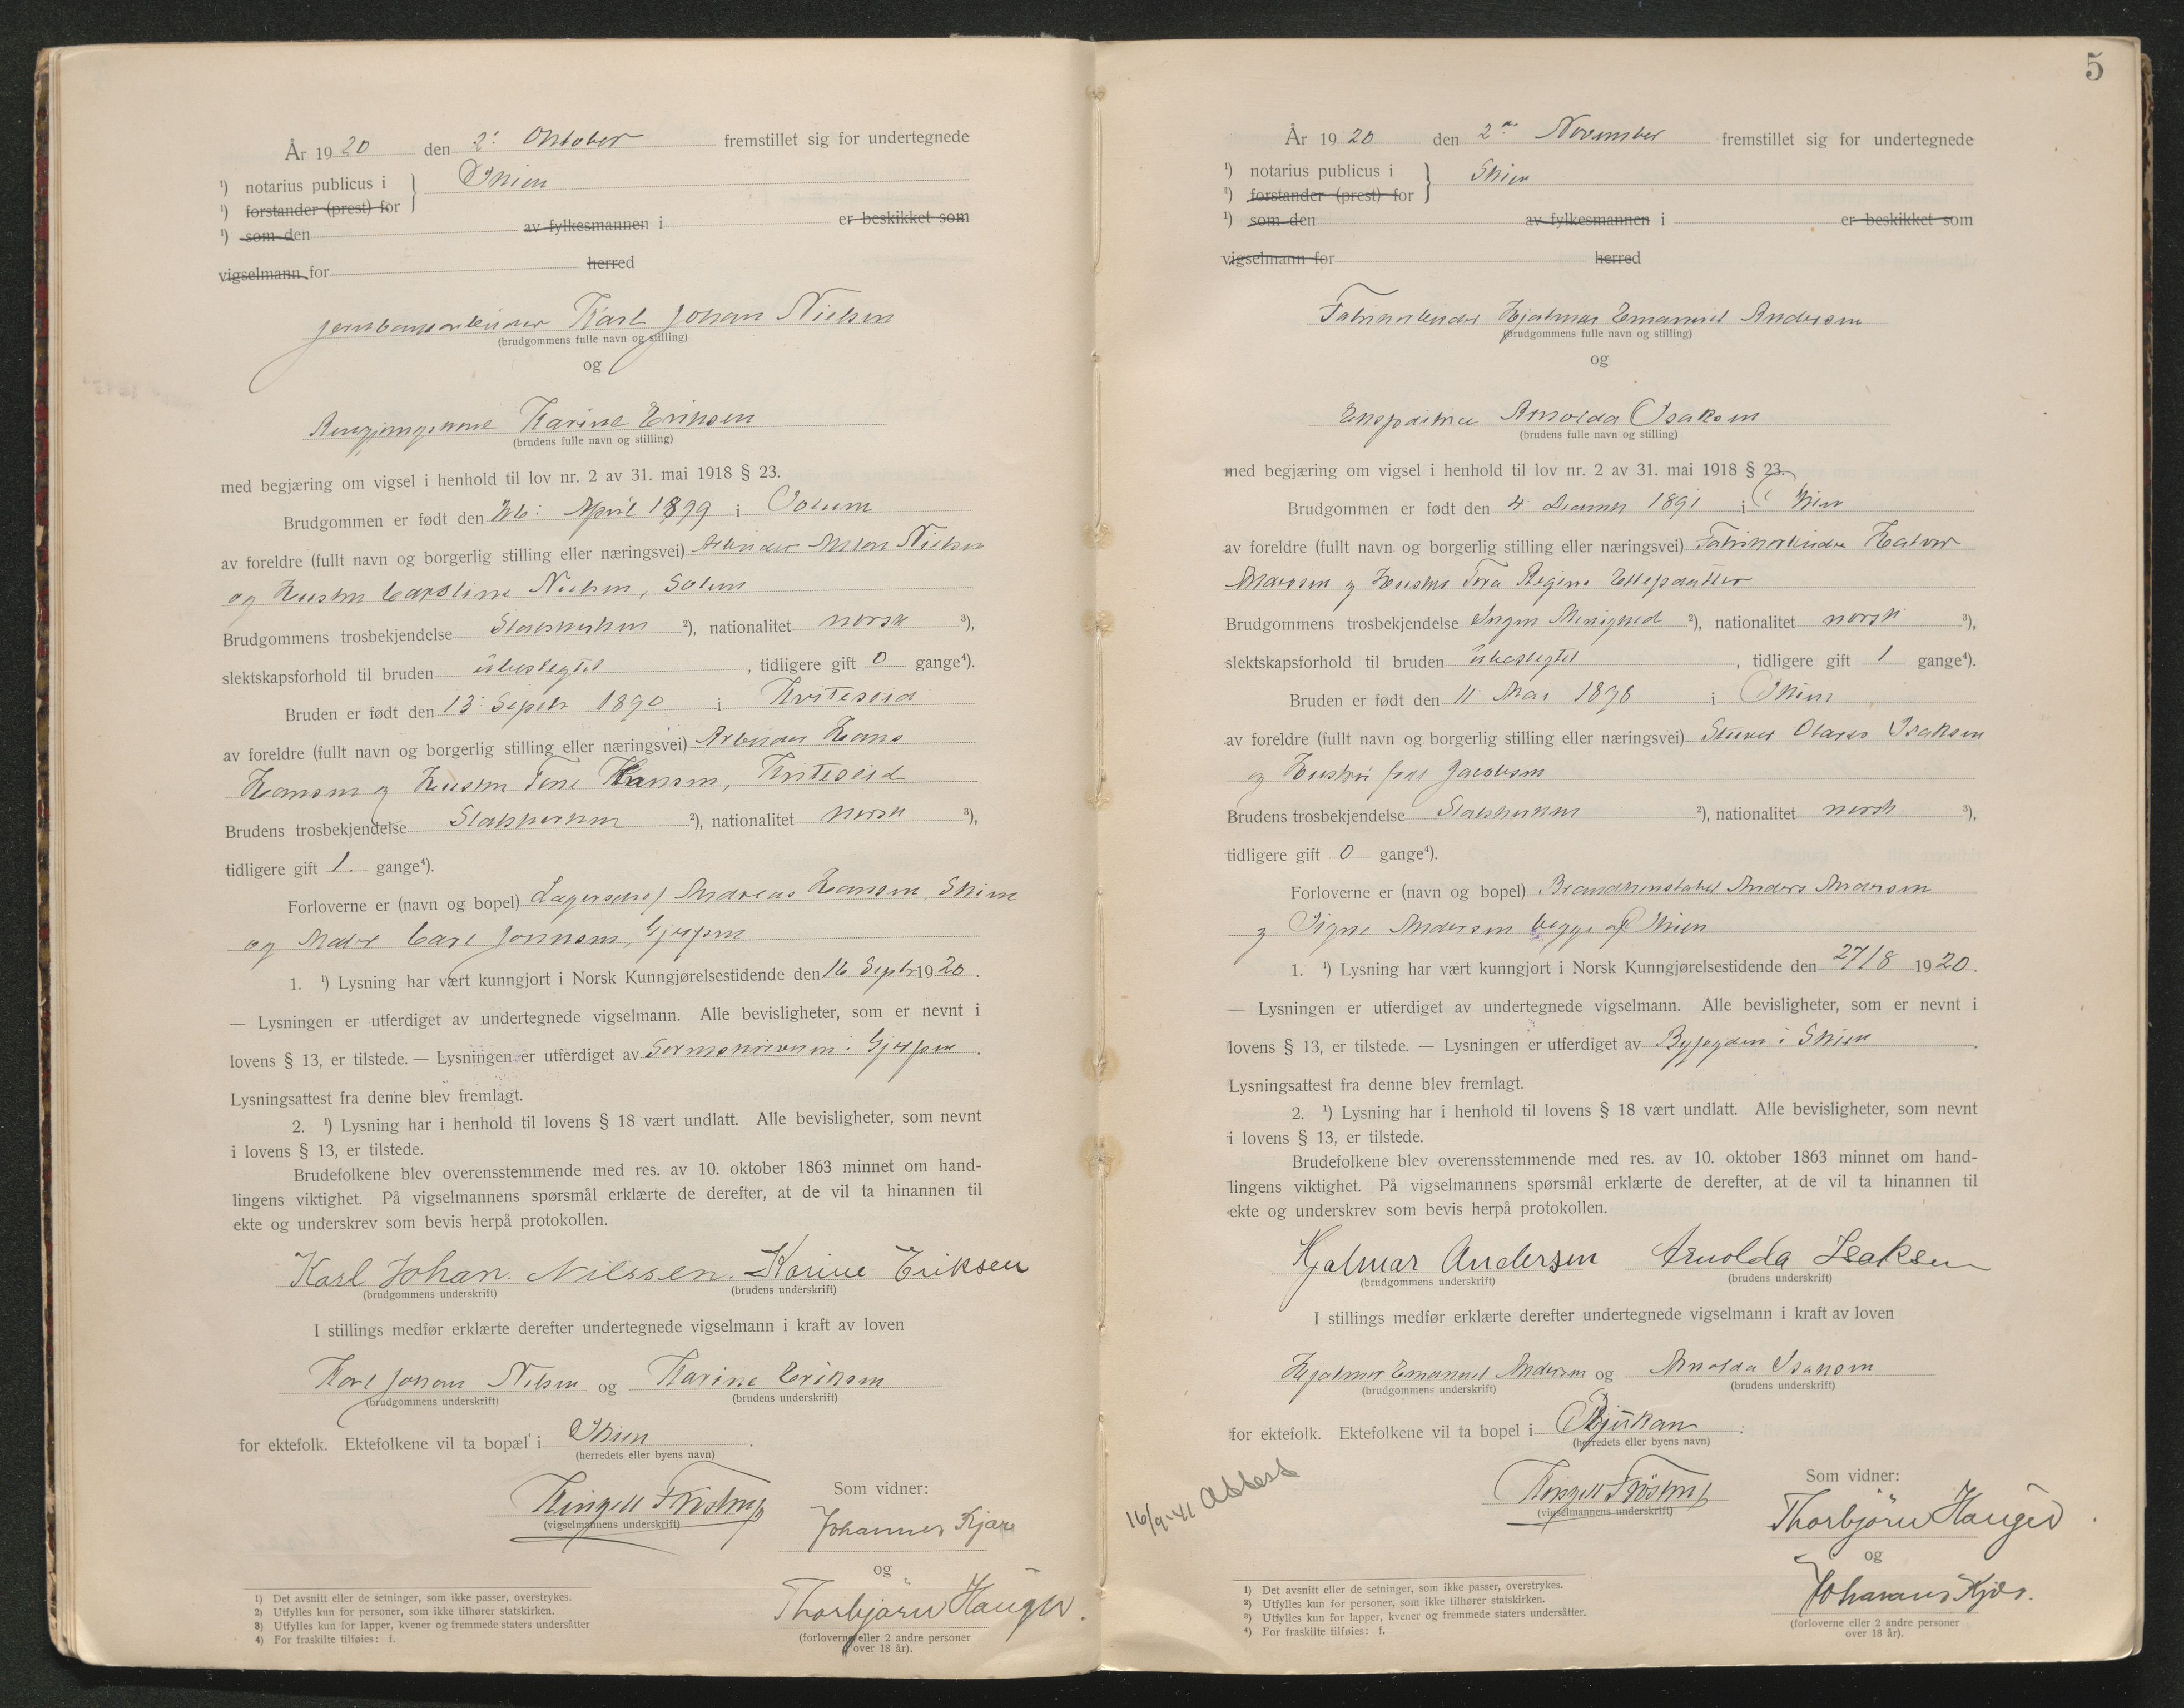 År 1920 den 2' Oktober fremstillet sig for undertegnede
¹) notarius publicus i Skien
¹) forstander (prest) for
¹) som den av fylkesmannen i er beskikket som
vigselmann for herred
Jernbanearbeider Karl Johan Nielsen
(brudgommens fulle navn og stilling)
og
Karine Eriksen
(brudens fulle navn og stilling)
med begjæring om vigsel i henhold til lov nr. 2 av 31. mai 1918 § 23.
Brudgommen er født den April 1899 i Solum
av foreldre (fullt navn og borgerlig stilling eller næringsvei) Arbeider Anton Nielsen
og Hustru Caroline Nielsen, Solum
Brudgommens trosbekjendelse Statskirken ²), nationalitet norsk ³),
slektskapsforhold til bruden ubeslegtet, tidligere gift 0 gange⁴).
Bruden er født den 13: Septbr 1890 i Kviteseid
av foreldre (fullt navn og borgerlig stilling eller næringsvei) Arbeider Hans
Hansen og Hustru Tone Hansen, Kviteseid
Brudens trosbekjendelse Statskirken ²), nationalitet norsk ³),
tidligere gift 1. gange⁴).
Forloverne er (navn og bopel) Andreas Hansen, Skien
og Carl Johnsen, Gjerpen
1. ¹) Lysning har vært kunngjort i Norsk Kunngjørelsestidende den 16 Septbr 1920.
— Lysningen er utferdiget av undertegnede vigselmann. Alle bevisligheter, som er nevnt i
lovens § 13, er tilstede. — Lysningen er utferdiget av Sorenskriveren i Gjerpen.
Lysningsattest fra denne blev fremlagt.
2. ¹) Lysning har i henhold til lovens § 18 vært undlatt. Alle bevisligheter, som nevnt
i lovens § 13, er tilstede.
Brudefolkene blev overensstemmende med res. av 10. oktober 1863 minnet om hand-
lingens viktighet. På vigselmannens spørsmål erklærte de derefter, at de vil ta hinannen til
ekte og underskrev som bevis herpå protokollen.
Karl Johan. Nilssen. Karine Eriksen
(brudgommens underskrift) (brudens underskrift)
I stillings medfør erklærte derefter undertegnede vigselmann i kraft av loven
Karl Johan Nielsen og Karine Eriksen
(brudgommens underskrift) (brudens underskrift)
for ektefolk. Ektefolkene vil ta bopæl i Skien.
(herredets eller byens navn)
Som vidner:
(vigselmannens underskrift)
Johannes Kjær
og
Thorbjørn Hauger.
(forloverne eller 2 andre personer
over 18 år).
1) Det avsnitt eller de setninger, som ikke passer, overstrykes.
2) Utfylles kun for personer, som ikke tilhører statskirken.
3) Utfylles kun for lapper, kvener og fremmede staters undersåtter
4) For fraskilte tilføies: f.
5
År 1920 den 2den November fremstillet sig for undertegnede
¹) notarius publicus i Skien
¹) forstander (prest) for
¹) som den av fylkesmannen i er beskikket som
vigselmann for herred
Fabrikarbeider Hjalmar Emanuel Andersen
(brudgommens fulle navn og stilling)
og
Ekspeditrice Arnolda Isaksen
(brudens fulle navn og stilling)
med begjæring om vigsel i henhold til lov nr. 2 av 31. mai 1918 § 23.
Brudgommen er født den 4. Decembr 1891 i Skien
av foreldre (fullt navn og borgerlig stilling eller næringsvei) Fabrikarbeider Halvor
Andersen og Hustru Tora Regine Ellefsdatter
Brudgommens trosbekjendelse Ingen Menighed ²), nationalitet norsk ³),
slektskapsforhold til bruden ubeslegtet, tidligere gift 1 gange⁴).
Bruden er født den 11 Mai 1898 i Skien
av foreldre (fullt navn og borgerlig stilling eller næringsvei) Olaves Isaksen
og Hustru født Jacobsen
Brudens trosbekjendelse Statskirken ²), nationalitet norsk ³),
tidligere gift 0 gange⁴).
Forloverne er (navn og bopel) Brandkonstabel Anders Andersen
og Signe Andersen begge af Skien
1. ¹) Lysning har vært kunngjort i Norsk Kunngjørelsestidende den 27/8 1920.
— Lysningen er utferdiget av undertegnede vigselmann. Alle bevisligheter, som er nevnt i
lovens § 13, er tilstede. — Lysningen er utferdiget av Byfogden i Skien.
Lysningsattest fra denne blev fremlagt.
2. ¹) Lysning har i henhold til lovens § 18 vært undlatt. Alle bevisligheter, som nevnt
i lovens § 13, er tilstede.
Brudefolkene blev overensstemmende med res. av 10. oktober 1863 minnet om hand-
lingens viktighet. På vigselmannens spørsmål erklærte de derefter, at de vil ta hinannen til
ekte og underskrev som bevis herpå protokollen.
Hjalmar Andersen Arnolda Isaksen
(brudgommens underskrift) (brudens underskrift)
I stillings medfør erklærte derefter undertegnede vigselmann i kraft av loven
Hjalmar Emanuel Andersen og Arnolda Isaksen
(brudgommens underskrift) (brudens underskrift)
for ektefolk. Ektefolkene vil ta bopel i Rjukan.
(herredets eller byens navn)
16/9-41 Attest
Som vidner:
(vigselmannens underskrift)
Thorbjørn Hauger.
og
Johannes Kjær.
(forloverne eller 2 andre personer
over 18 år).
1) Det avsnitt eller de setninger, som ikke passer, overstrykes.
2) Utfylles kun for personer, som ikke tilhører statskirken.
3) Utfylles kun for lapper, kvener og fremmede staters undersåtter.
4) For fraskilte tilføies: f.